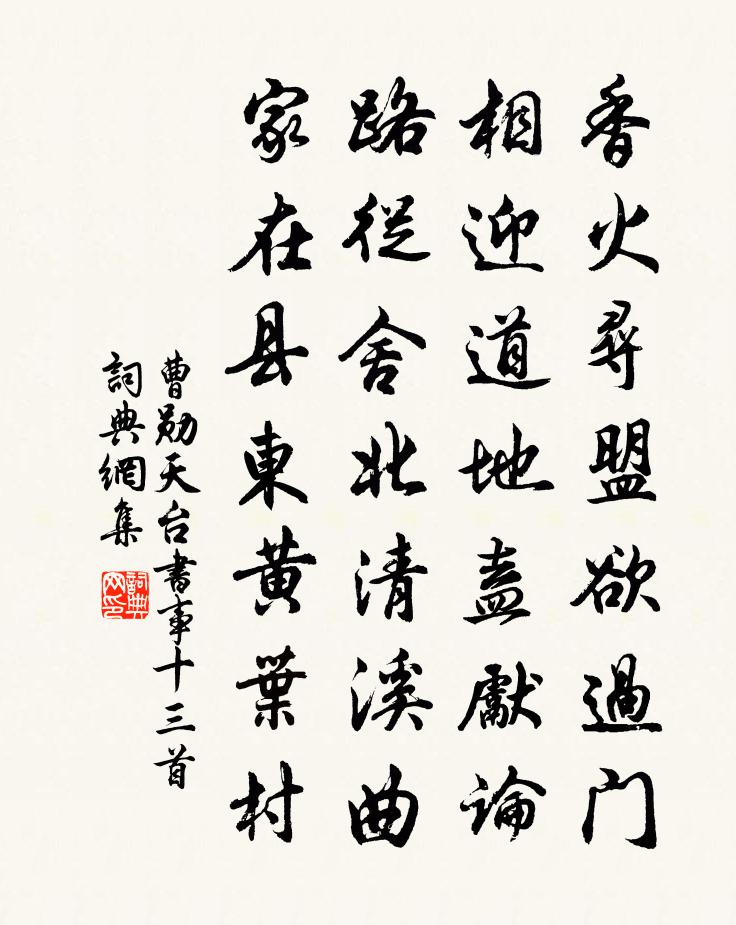 香火尋盟欲過门
相迎道地盍獻論
路從舍北清溪曲
家在县東黄葉村
曹勛天台書事十三首
詞典網集
詞典网印